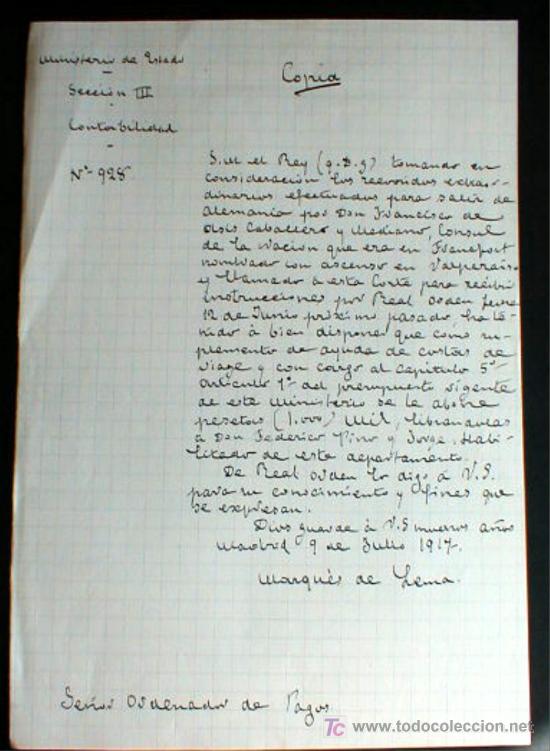 Ministerio de Estado
Sección III
Contabilidad
Nº 928
Copia
S.M el Rey (q.D.g) tomando en
consideración los recorridos extraor-
dinarios efectuados para salir de
Alemania por Don Francisco de
Asís Caballero y Mediano, Consul
de la Nacion que era en Francfort
nombrado con ascenso en Valparaiso
y llamado á esta Corte para recibir
instrucciones por Real orden fecha
12 de Junio próximo pasado, ha te-
nido á bien disponer que como su-
plemento de ayuda de costas de
viage y con cargo al capitulo 5º
articulo 1º del presupuesto vigente
de este Ministerio se le abone
pesetas (1.000) Mil, librandolas
á Don Federico Pino y Jorge, Habi-
litado de este departamento.
De Real orden lo digo á V.S.
para su conocimiento y fines que
se expresan.
Dios guarde á V.S muchos años
Madrid 9 de Julio 1917.
Marqués de Lema.
Señor Ordenador de Pagos.
TC todocoleccion
www.todocoleccion.net